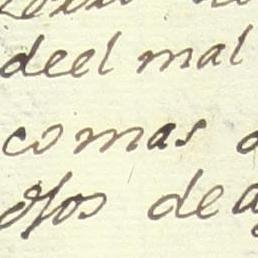 deel mal
comas
ojos de